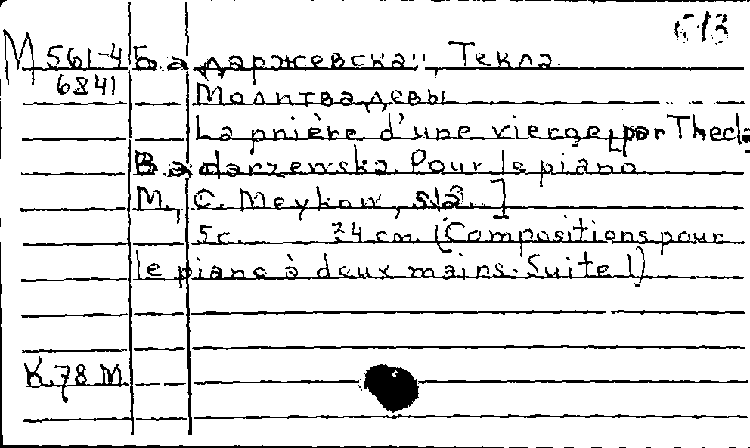 613
М 561-4 Бадаржевская, Текла
6841
Молитва девы
La prière d'une vierge, par Thecla
Badarzewska. Pour le piano
M., C. Meykow, s.a.]
5 с. 34 cm. (Compositions pour
le piano à deux mains. Suite 1)
К.78 М